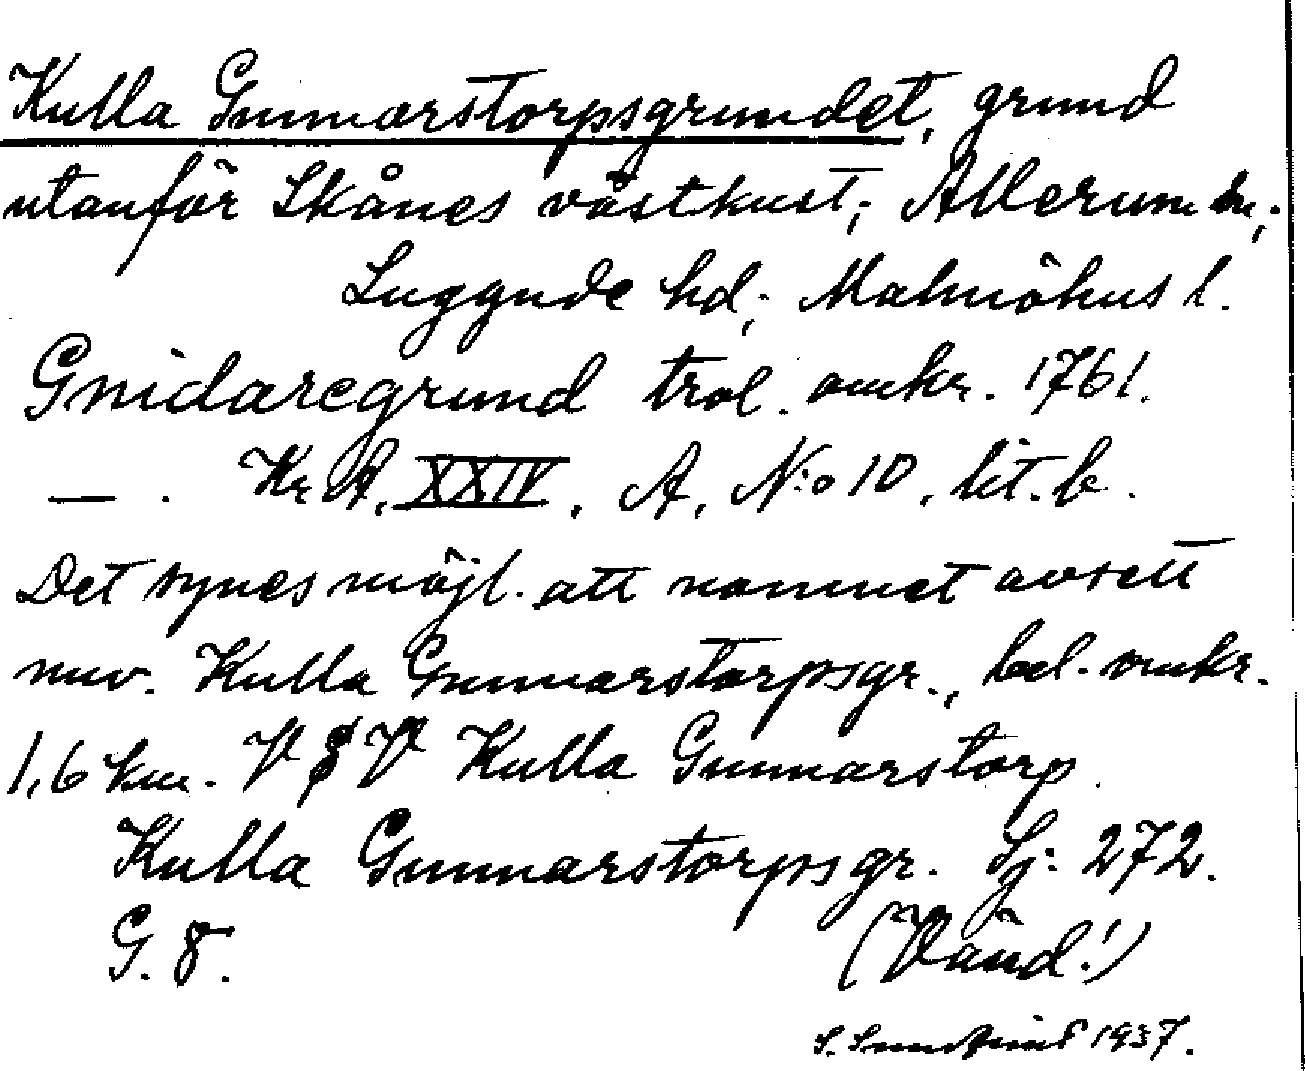 Kulla Gunnarstorpsgrundet, grund
utanför Skånes västkust; Allerum sn;
Luggude hd; Malmöhus l.
Gnidaregrund trol. omkr. 1761.
— . Kr A. XXIV, A, N:o 10, lit. b.
Det synes möjl. att namnet avsett
nuv. Kulla Gunnarstorpsgr., bel. omkr.
1,6 km. V V Kulla Gunnarstorp.
Kulla Gunnarstorpsgr. Sj: 272.
G. 8.
(Vänd!)
S. 1937.